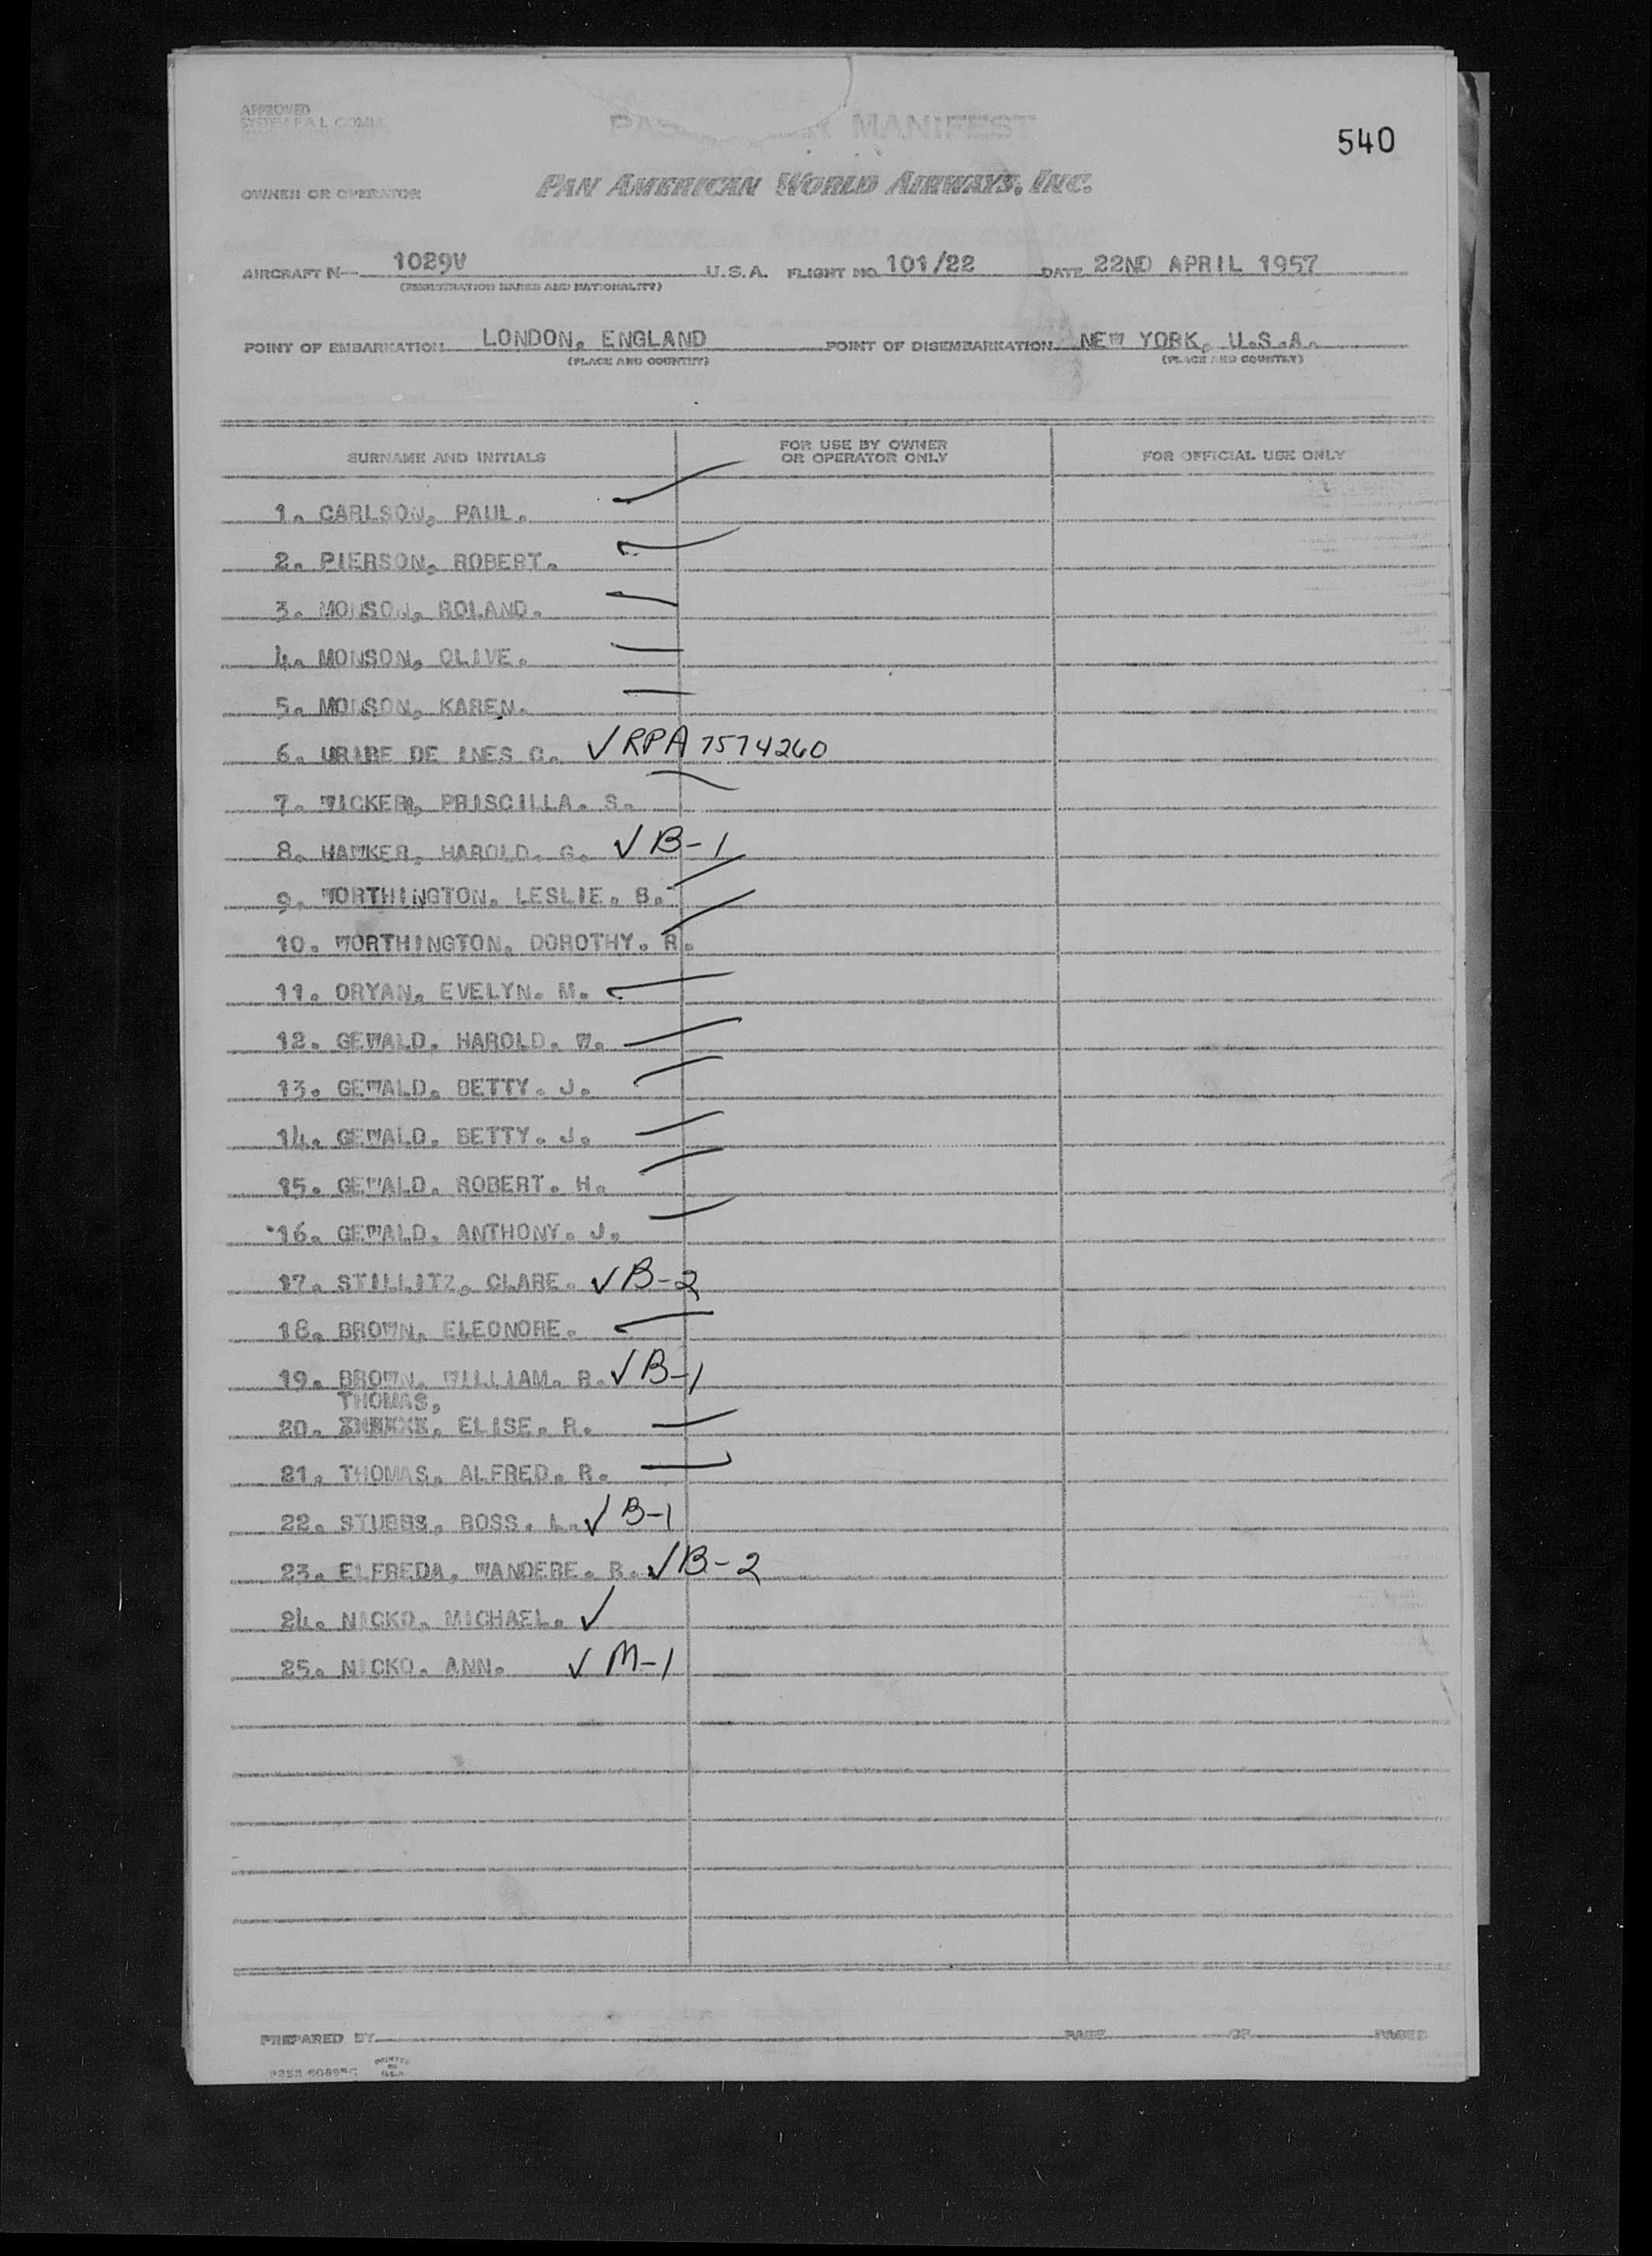 540
APPROVED
SYSTEM F.A.L. COMM.
MANIFEST
OWNER OR OPERATOR PAN AMERICAN WORLD AIRWAYS, INC.
AIRCRAFT N— 1029V U.S.A. FLIGHT NO. 101/22 DATE 22ND APRIL 1957
(REGISTRATION MARKS AND NATIONALITY)
POINT OF EMBARKATION LONDON, ENGLAND POINT OF DISEMBARKATION NEW YORK, U.S.A.
(PLACE AND COUNTRY) (PLACE AND COUNTRY)
SURNAME AND INITIALS FOR USE BY OWNER OR OPERATOR ONLY FOR OFFICIAL USE ONLY
1. CARLSON, PAUL.
2. PIERSON, ROBERT.
3. MONSON, ROLAND.
4. MONSON, OLIVE.
5. MONSON, KAREN.
6. URIBE DE INES C. ✓ RPA 7574260
7. WICKER, PRISCILLA. S.
8. HAWKER, HAROLD. G. ✓ B-1
9. WORTHINGTON, LESLIE. B.
10. WORTHINGTON, DOROTHY. R.
11. ORYAN, EVELYN. M.
12. GEWALD, HAROLD. W.
13. GEWALD, BETTY. J.
14. GEWALD, BETTY. J.
15. GEWALD, ROBERT. H.
16. GEWALD, ANTHONY. J.
17. STILLITZ, CLARE. ✓ B-2
18. BROWN, ELEONORE.
19. BROWN, WILLIAM. R. ✓ B-1
THOMAS,
20. ELISE. R.
21. THOMAS, ALFRED. R.
22. STUBBS, ROSS. L. ✓ B-1
23. ELFREDA, WANDERE. R. ✓ B-2
24. NICKO, MICHAEL. ✓
25. NICKO, ANN. ✓ M-1
PREPARED BY PAGE OF PAGES